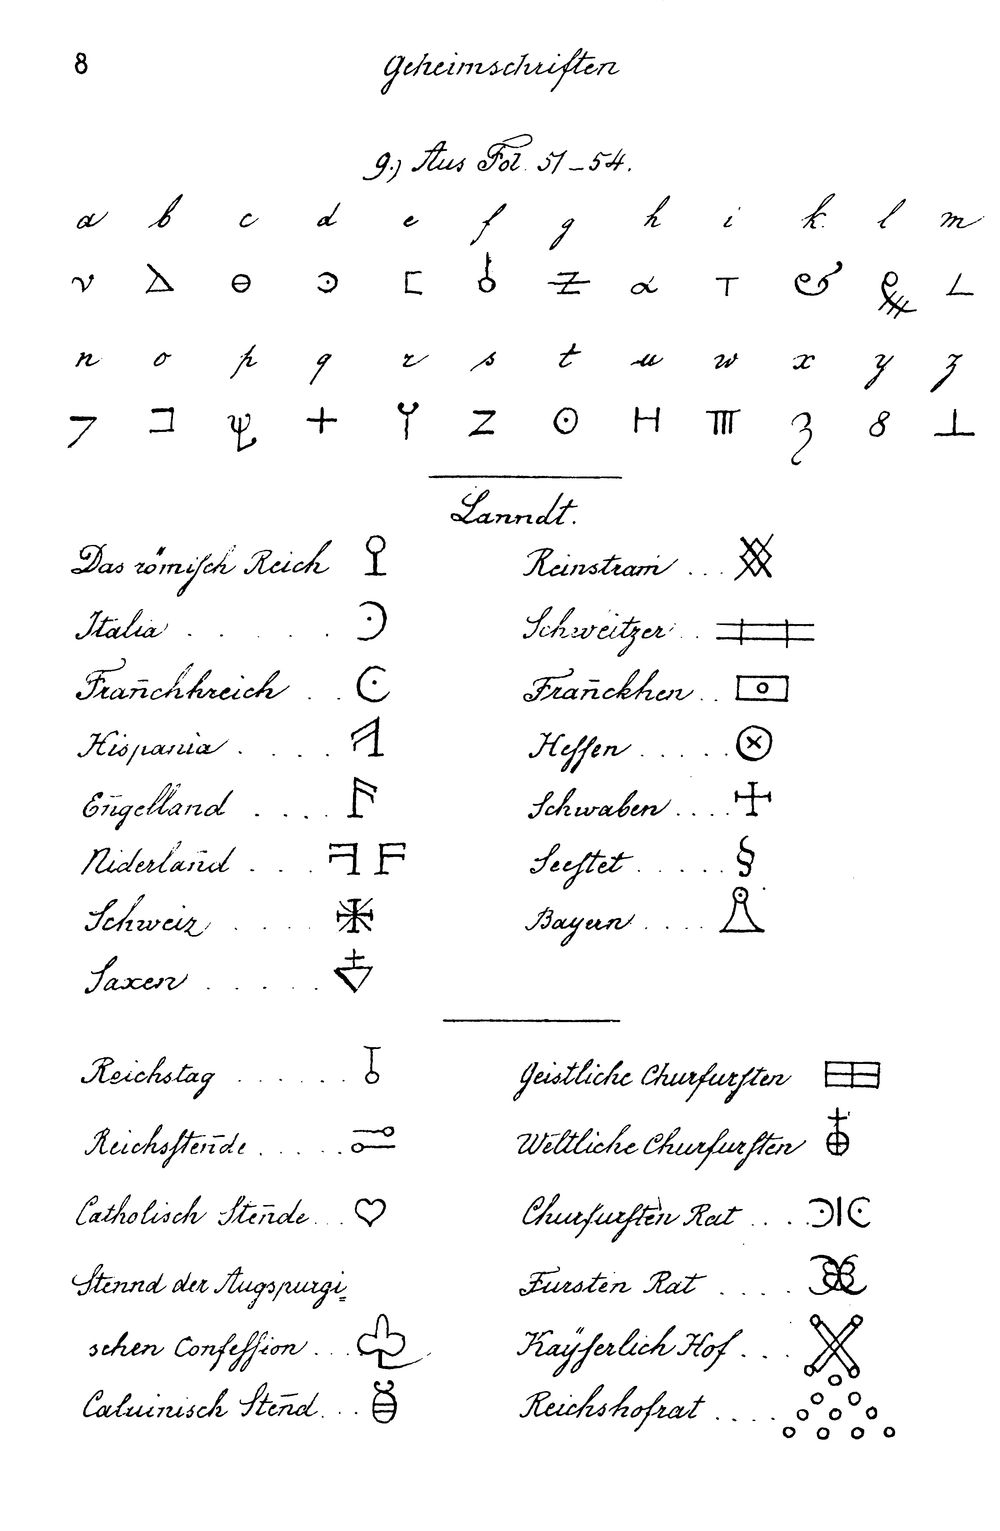 8 Geheimschriften
9.) Aus Fol. 51-54.
a b c d e f g h i k l m
n o p q r s t u w x y z
Lanndt.
Das römisch Reich
Italia . . . . . .
Frañchhreich . .
Hispania . . . . .
Eñgelland . . . .
Niderlañd . . .
Schweiz . . . .
Saxen . . . . .
Reinstram . . .
Schweitzer . .
Frañckhen . .
Hessen . . . . .
Schwaben . . . .
Seestet . . . . .
Bayern . . . .
Reichstag . . . . . .
Reichssteñde . . . . .
Catholisch Steñde . . .
Stennd der Augspurgi=
schen Confession . . .
Caluinisch Steñd . . .
Geistliche Churfursten
Weltliche Churfursten
Churfursten Rat . . . .
Fursten Rat . . . .
Kaÿserlich Hof . . .
Reichshofrat . . . .